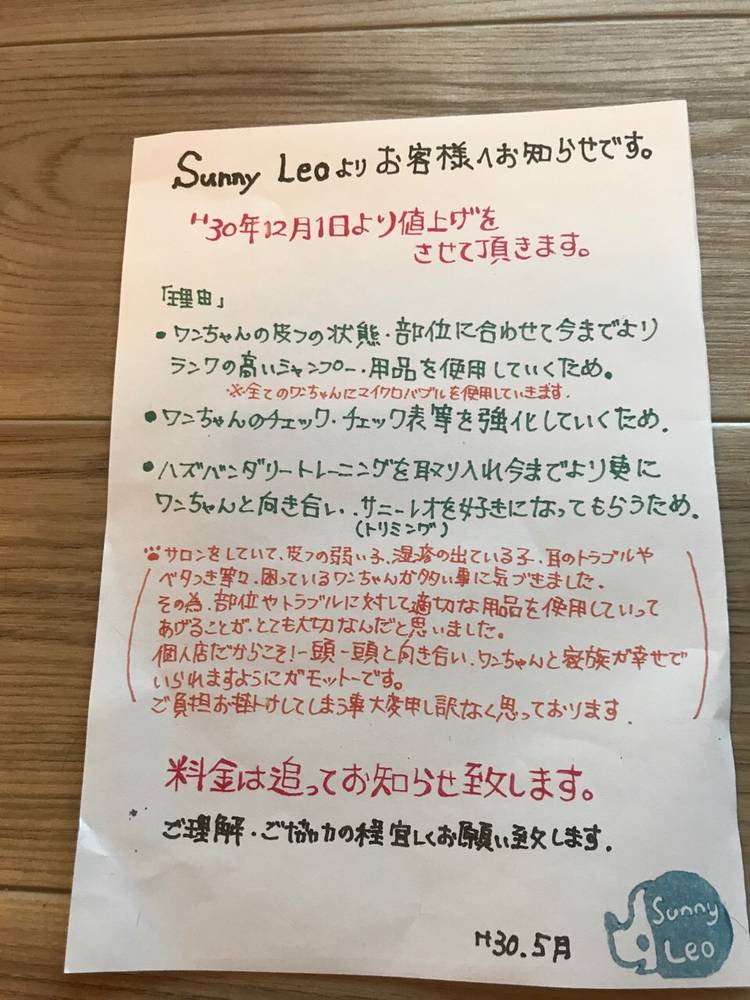 Sunny Leoよりお客様へお知らせです。
H30年12月1日より値上げを
させて頂きます。
「理由」
●ワンちゃんの皮フの状態・部位に合わせて今までより
ランクの高いシャンプー・用品を使用していくため。
※全てのワンちゃんにマイクロバブルを使用していきます.
●ワンちゃんのチェック・チェック表等を強化していくため.
●ハズバンダリートレーニングを取り入れ今までより更に
ワンちゃんと向き合い、サニーレオを好きになってもらうため.
(トリミング)
サロンをしていて、皮フの弱い子、湿疹の出ている子、耳のトラブルや
ベタつき等々、困っているワンちゃんが多い事に気づきました.
その為、部位やトラブルに対して適切な用品を使用していって
あげることが、とても大切なんだと思いました。
個人店だからこそ!一頭一頭と向き合い、ワンちゃんと家族が幸せで
いられますようにがモットーです。
ご負担お掛けしてしまう事大変申し訳なく思っております.
料金は追ってお知らせ致します。
ご理解・ご協力の程宜しくお願い致します.
H30.5月
Sunny
Leo